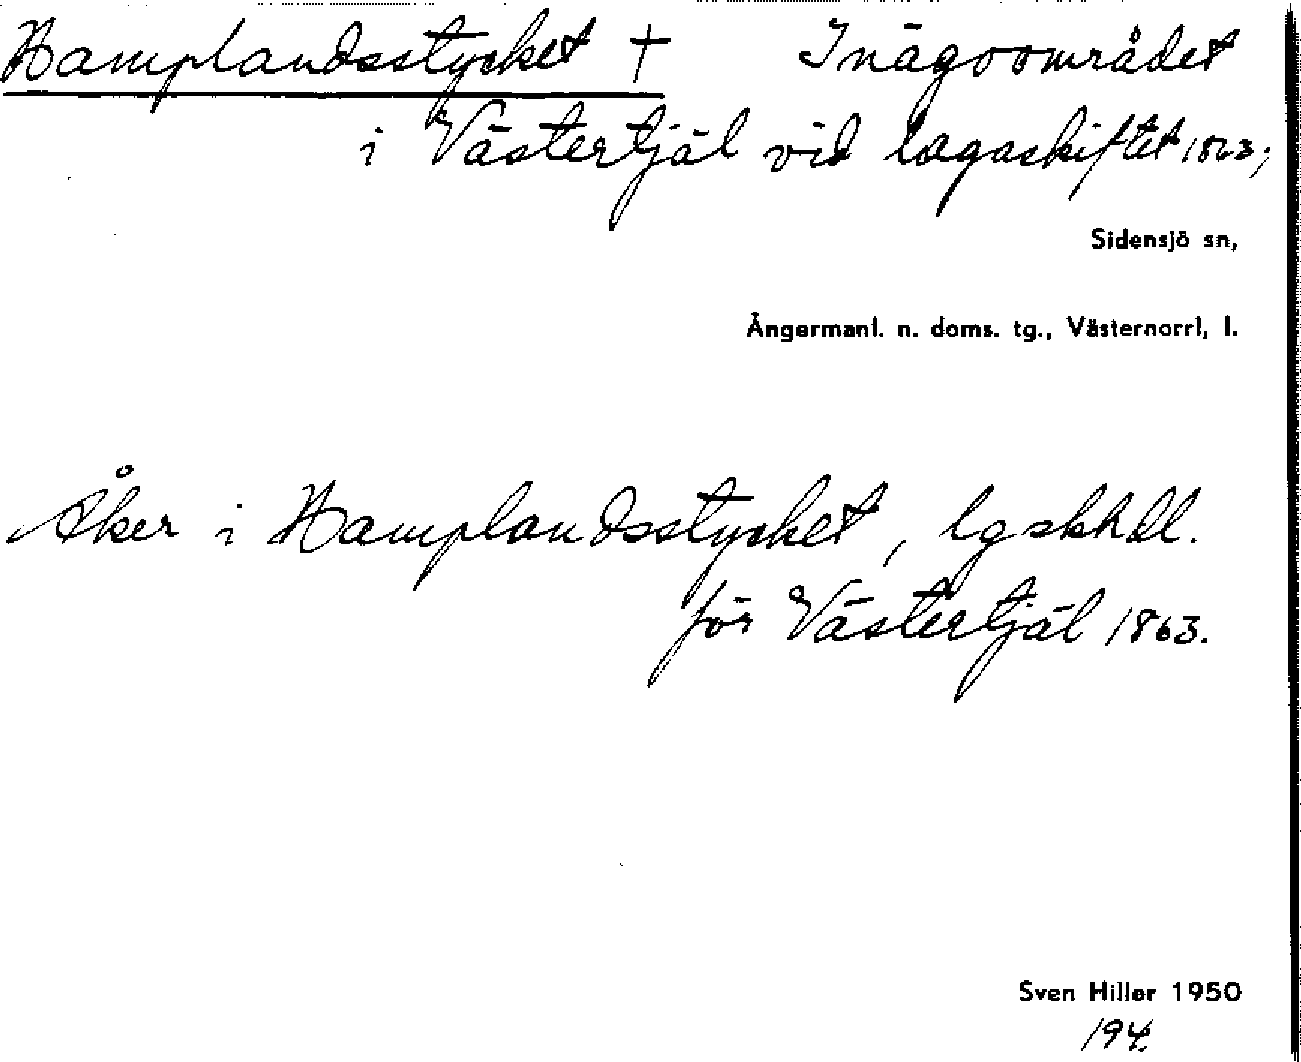 Hamplandsstycket † Inägoområdet
i Västertjäl vid lagaskiftet 1863;
Sidensjö sn,
Ångermanl. n. doms. tg., Västernorrl, l.
Åker i Hamplandsstycket, lgskhdl.
för Västertjäl 1863.
Sven Hiller 1950
194.